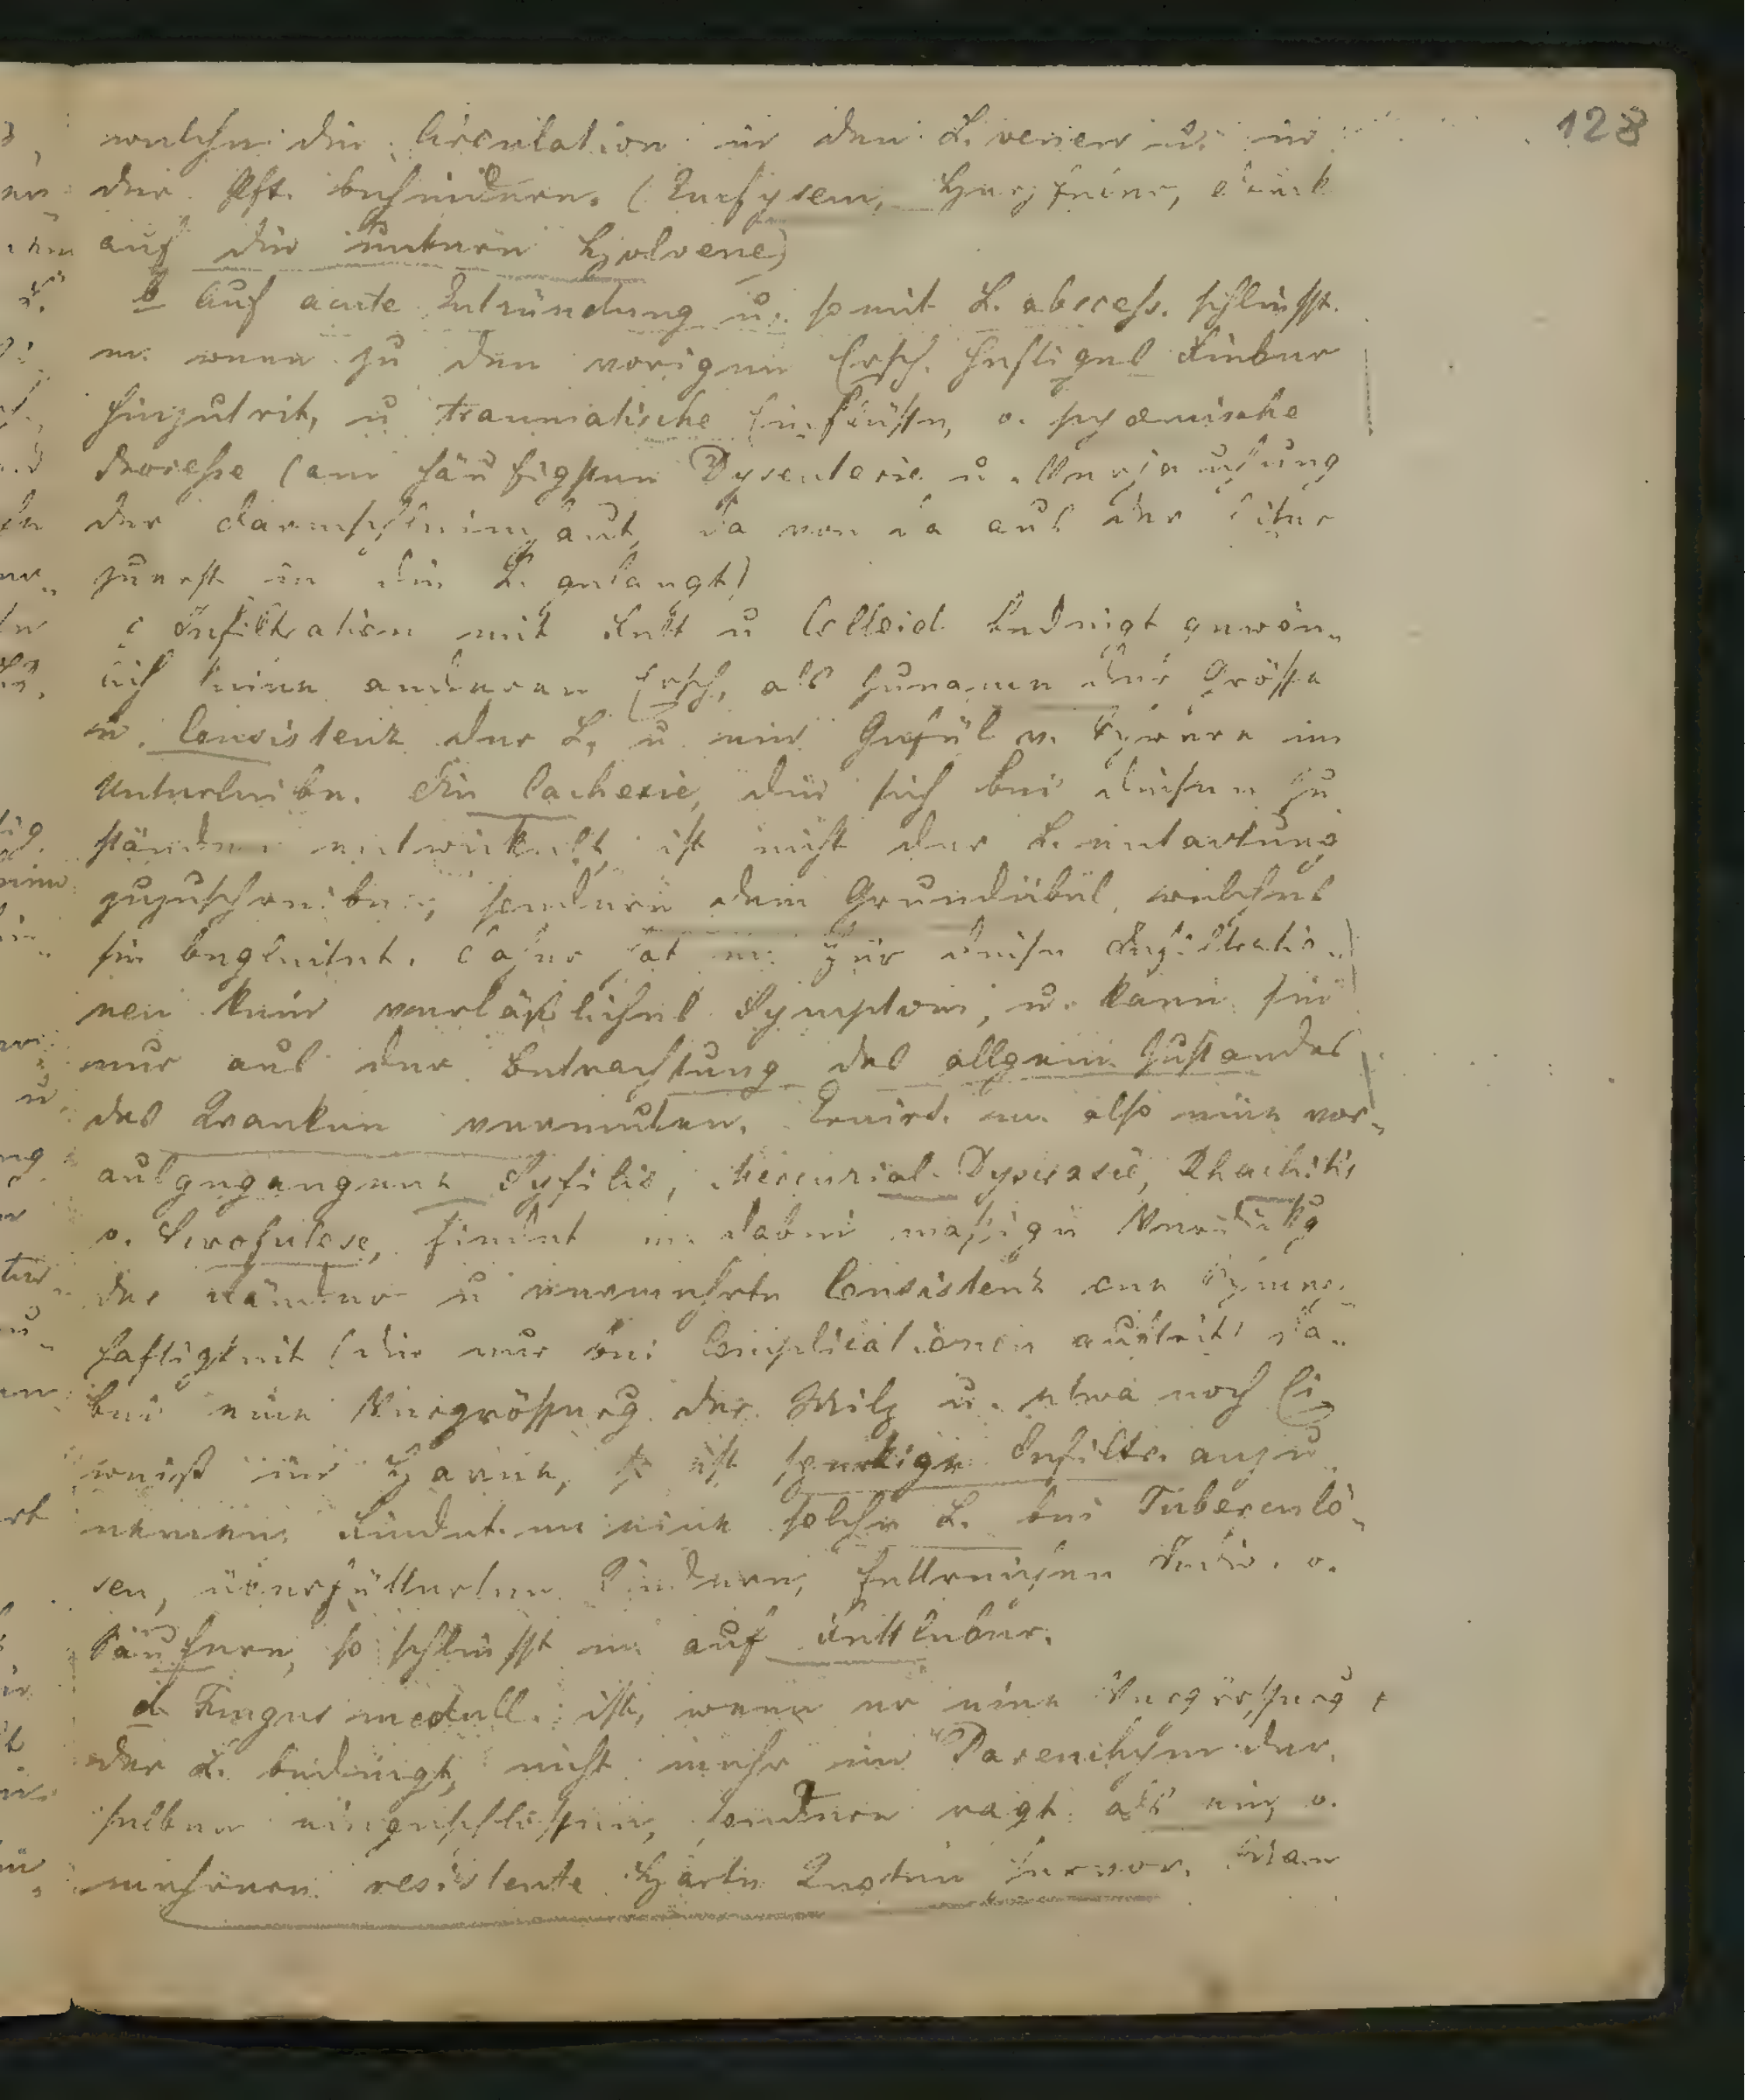 128
welche die Circulation in den L. venen u. in
der Pft. behindern. (Emfysem, Herzfeler, Druck
auf die untere Holvene)
b Auf acute Entzündung u. somit L. abscess. schliesst
m. wenn zu den vorigen Ersch. heftiges Fieber
hinzutrit, u traumatische Einflüsse, o. pyaemische
Processe (am häufigsten Dysenterie u. Verjauchung
der Darmschleimhaut, da von da aus der Eiter
zuerst in die L. gelangt)
c Infiltration mit Fett u Colloid bedingt gewön„
lich keine anderen Ersch, als Zunamen der Grösse
u. Consistenz der L, u. ein Gefül v. Schwere im
Unterleibe. Die Cachexie, die sich bei diesen Zu
ständen entwickelt, ist nicht der L. entartung
zuzuschreiben, sondern dem Grundübel, welches
sie begleitet. Daher hat m. für diese Infiltratio„
nen kein verläßliches Symptom, u. kann sie
nur aus der Betrachtung des allgem Zustandes
des Kranken vermuten. Eruirt m. also eine vor„
ausgegangene Syfilis, Mercurial-Dyscrasie, Rhachitis
o. Scrofulose, findet m. dabei mässige Verdickg
der Ränder u vermehrte Consistenz one Schmerz„
haftigkeit (die nur bei Complicationen auftrit) da„
bei eine Vergrösserg der Milz u. etwa noch Ei„
weiß im Harne, so ist speckige Infiltr. anzu
nemen. Findet m. eine solche L. bei Tuberculo„
sen, überfütterten Kindern, fettreichen Indiv. o.
Säufern, so schliesst m. auf Fettleber.
d Fungus medull. ist, wenn er eine Vergrösserg
der L. bedingt, nicht mehr im Parenchym der„
selben eingeschlossen, sondern ragt als ein, o.
mehrere resistente harte Knoten hervor. Man